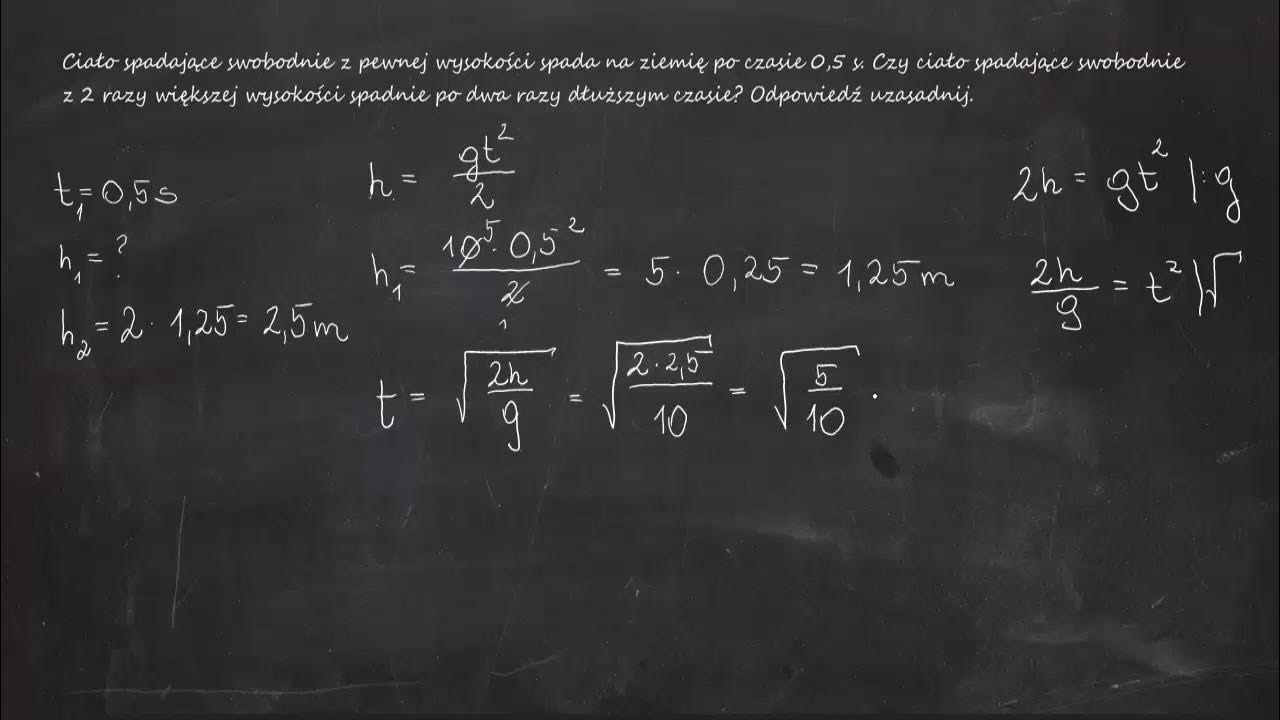 Ciało spadające swobodnie z pewnej wysokości spada na ziemię po czasie 0,5 s. Czy ciało spadające swobodnie
z 2 razy większej wysokości spadnie po dwa razy dłuższym czasie? Odpowiedź uzasadnij.
t₁ = 0,5 s
h₁ = ?
h₂ = 2 · 1,25 = 2,5 m
h = gt²/2
h₁ = 10⁵ · 0,5²/2₁ = 5 · 0,25 = 1,25 m
t = √(2h/g) = √(2 · 2,5/10) = √(5/10) ·
2h = gt² |: g
2h/g = t² |√